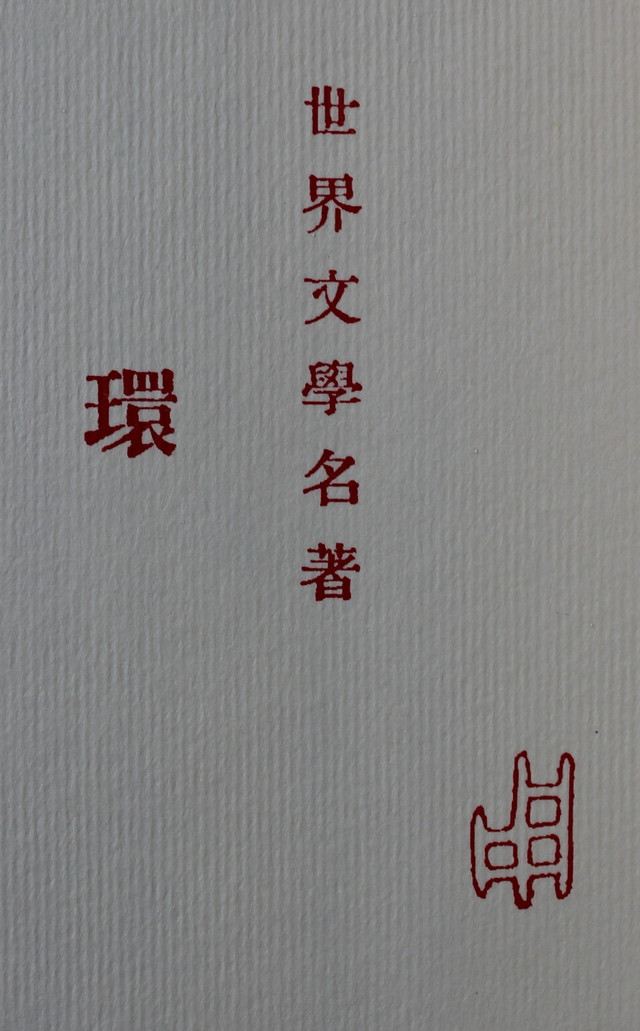 世界文學名著
環